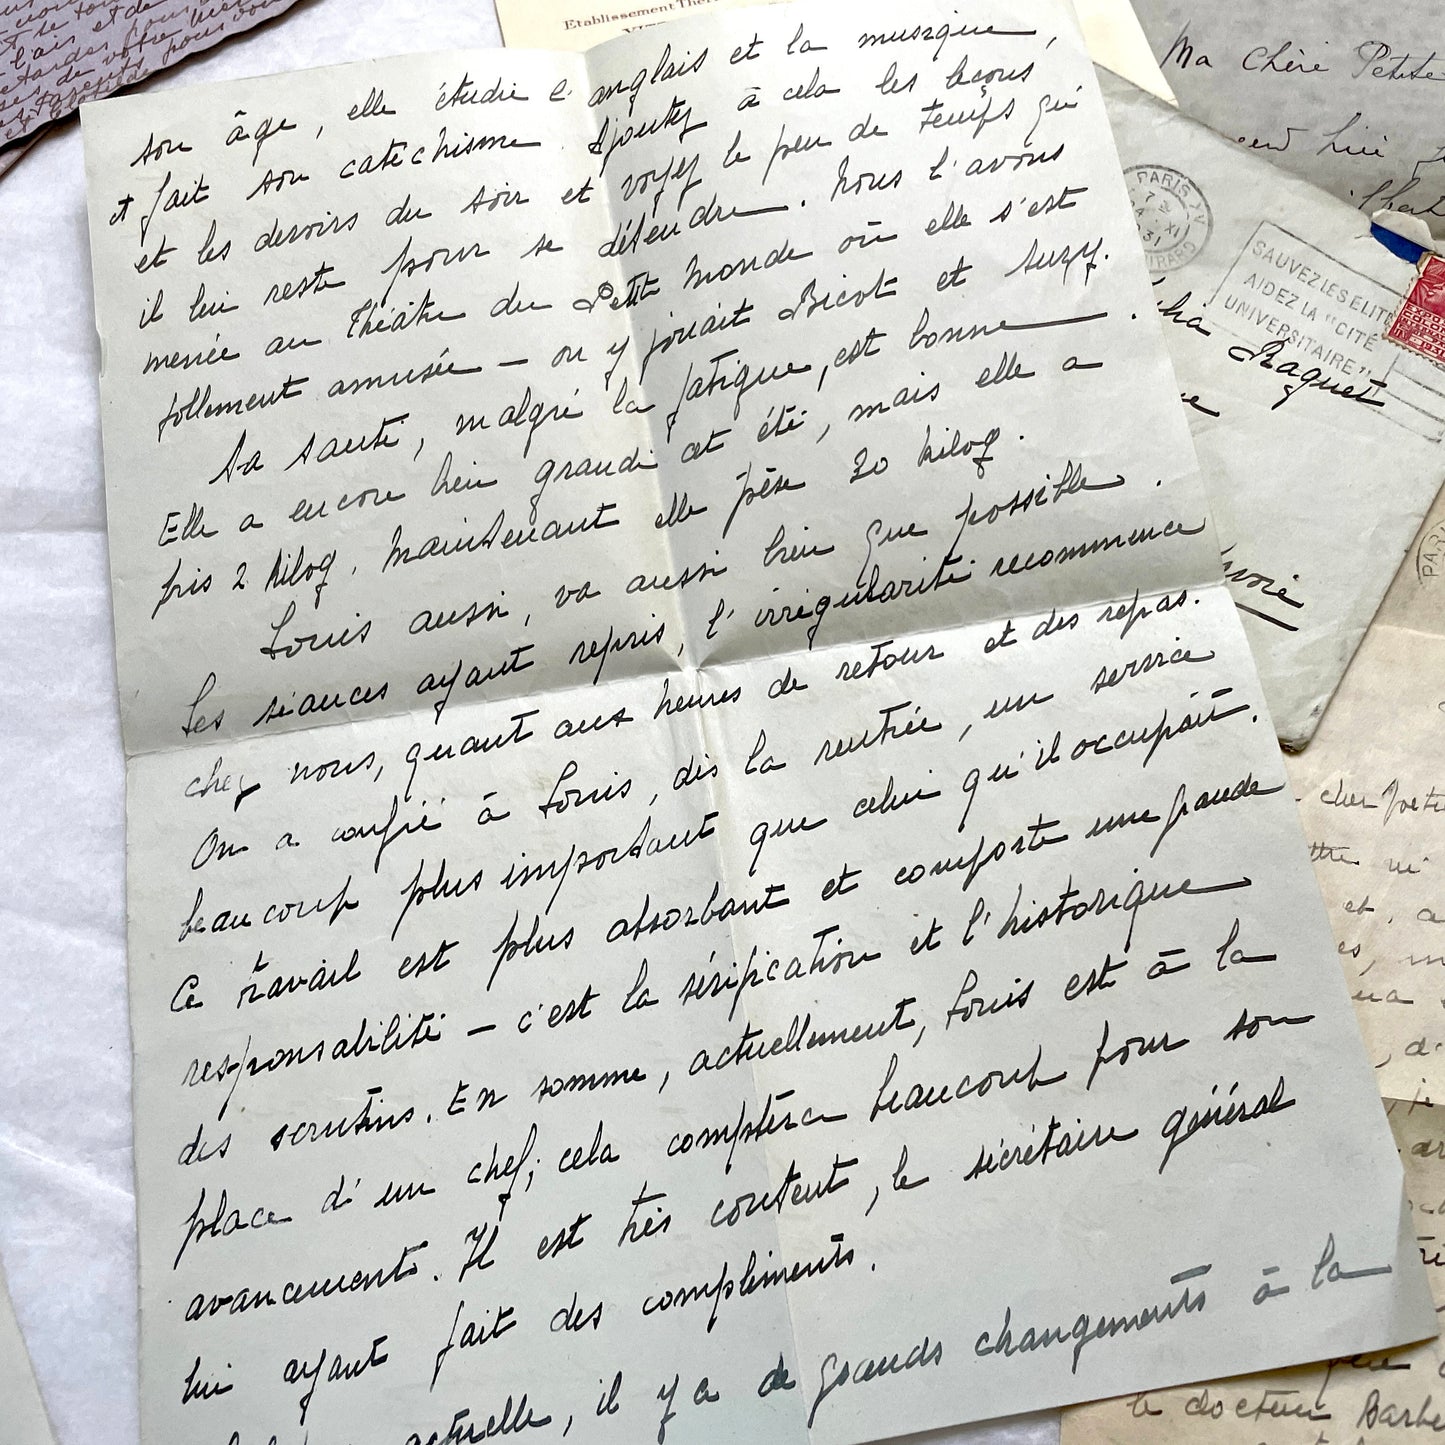 son âge, elle étudie l'anglais et la musique,
et fait son catéchisme. Ajoutez à cela les leçons
et les devoirs du soir et voyez le peu de temps qui
il lui reste pour se détendre. Nous l'avons
menée au Théâtre du Petit Monde où elle s'est
follement amusée — on y jouait Bicot et Suzy.
Sa santé, malgré la fatigue, est bonne.
Elle a encore bien grandi cet été, mais elle a
pris 2 kilog. Maintenant elle pèse 30 kilog.
Louis aussi, va aussi bien que possible.
Les séances ayant repris, l'irrégularité recommence
chez nous, quant aux heures de retour et des repas.
On a confié à Louis, dès la rentrée, un service
beaucoup plus important que celui qu'il occupait.
Ce travail est plus absorbant et comporte une grande
responsabilité — c'est la vérification et l'historique
des scrutins. En somme, actuellement, Louis est à la
place d'un chef; cela comptera beaucoup pour son
avancement. Il est très content, le secrétaire général
lui ayant fait des compliments.
actuelle, il y a de grands changements à la
Etablissement
Ma Chère Petite
PARIS XV
SAUVEZ LES ELITES
AIDEZ LA "CITÉ
UNIVERSITAIRE"
Raquet
cher
et
le docteur